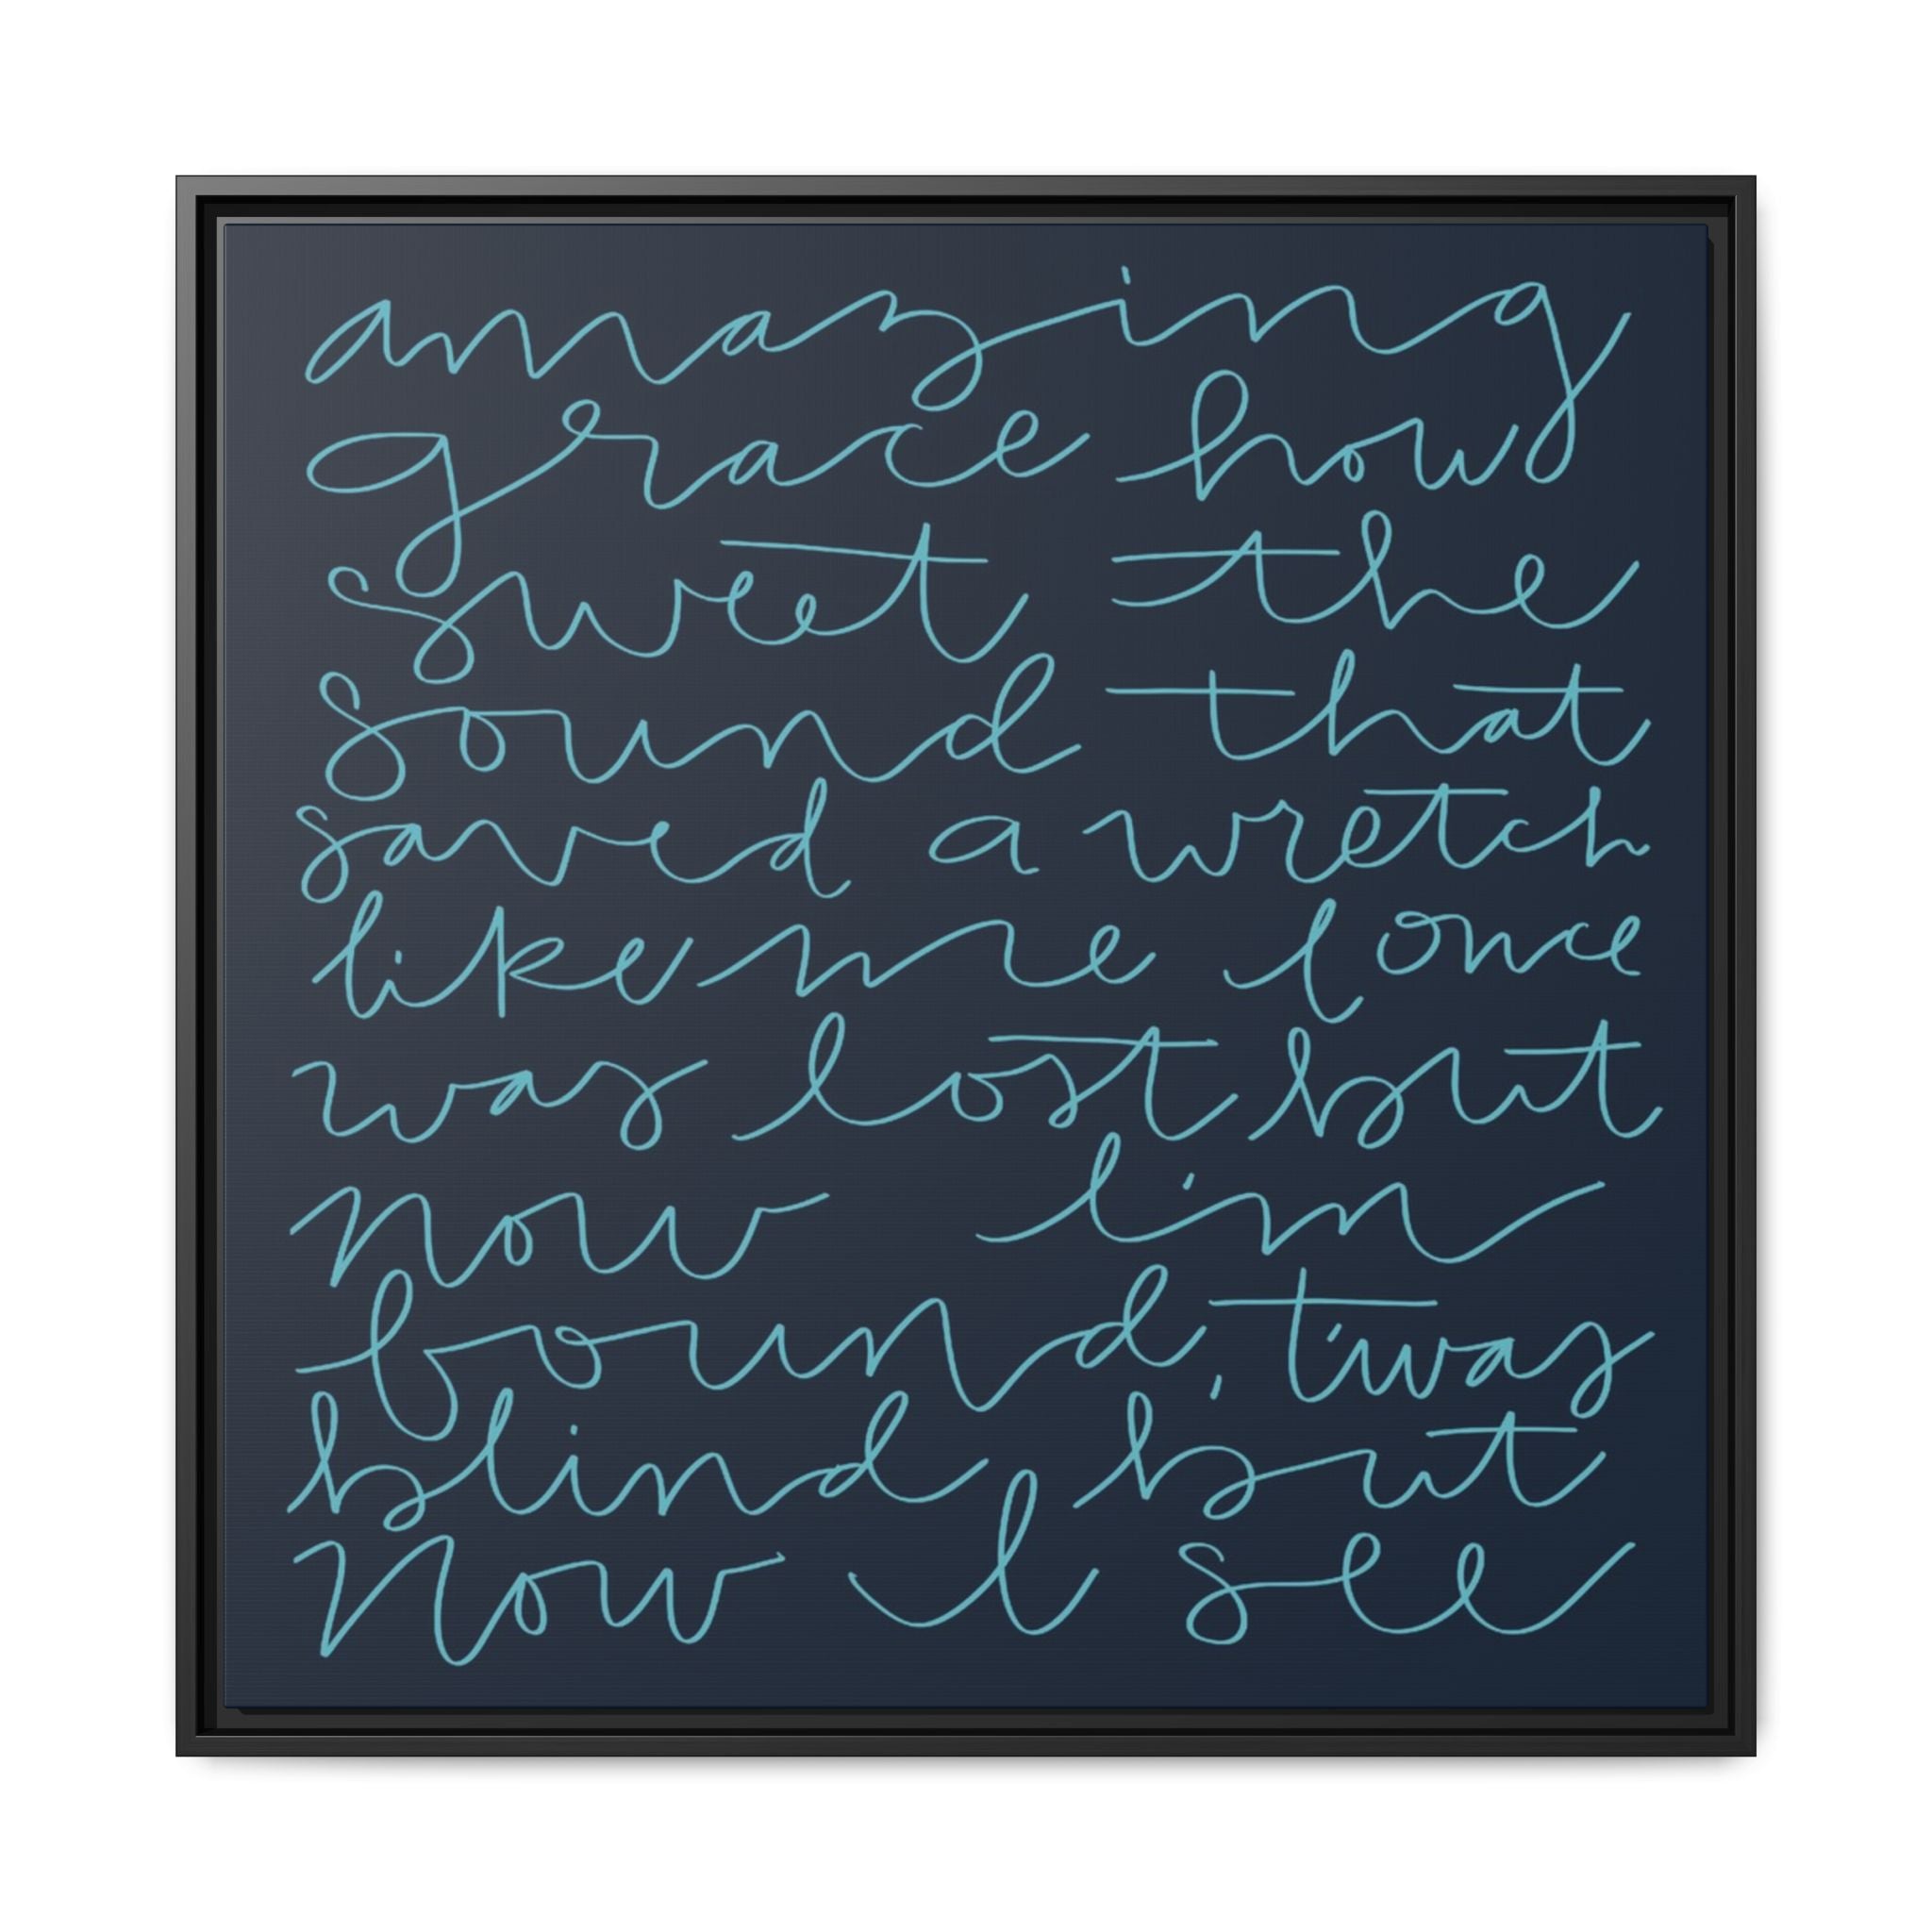 amazing
grace how
sweet the
sound that
saved a wretch
like me I once
was lost but
now I'm
found, t'was
blind but
now I see